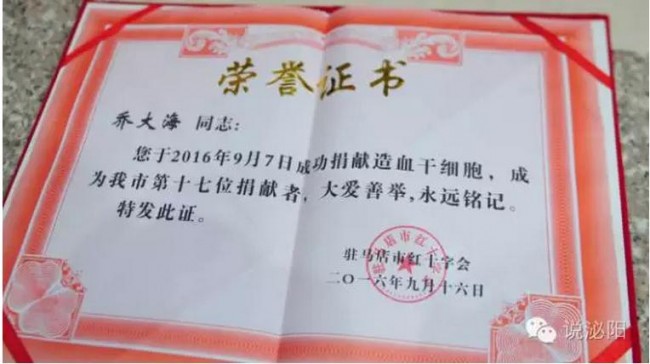 荣誉证书
乔大海 同志:
您于2016年9月7日成功捐献造血干细胞,成
为我市第十七位捐献者,大爱善举,永远铭记。
特发此证。
驻马店市红十字会
二〇一六年九月十六日
说泌阳